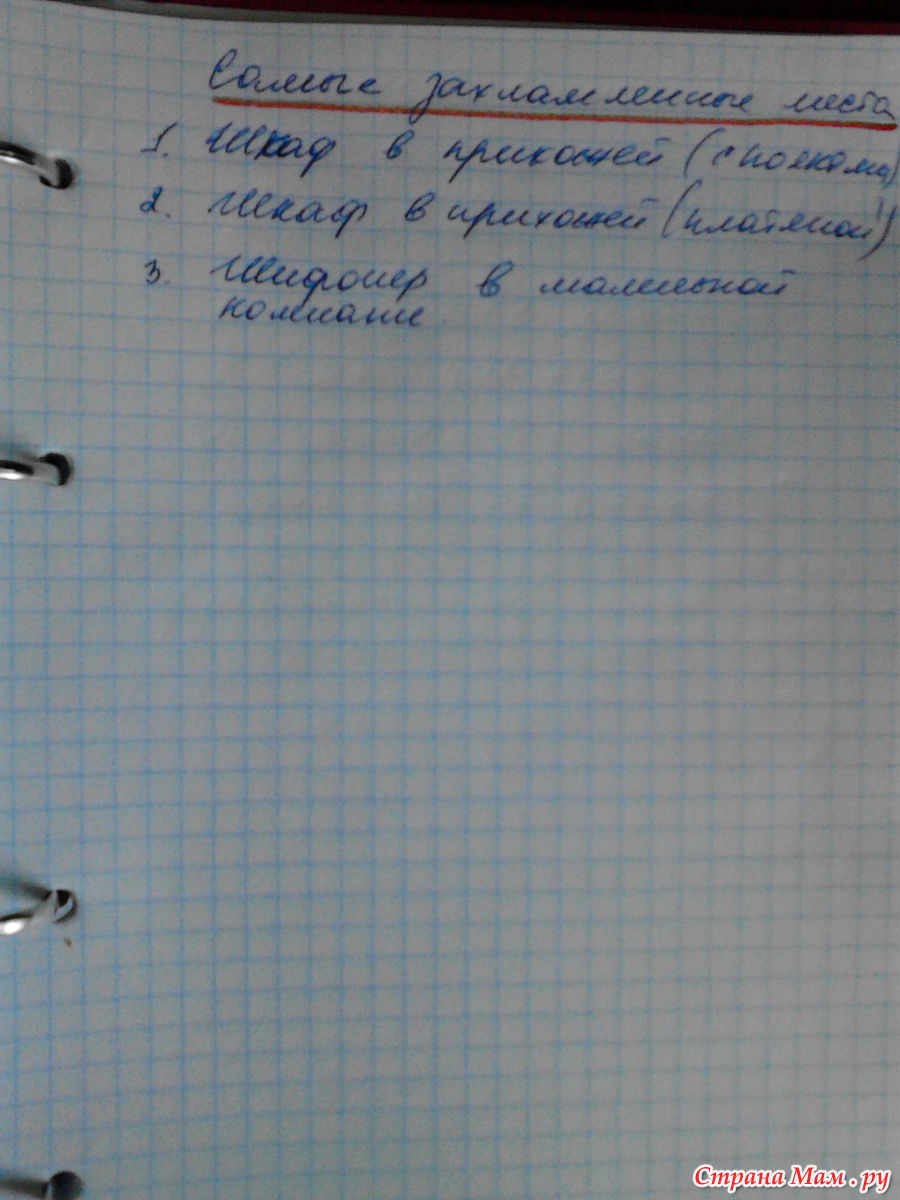 Самые захламленные места
1. Шкаф в прихожей (с полками)
2. Шкаф в прихожей (платяной)
3. Шифонер в маленькой
комнате
Страна Мам.ру